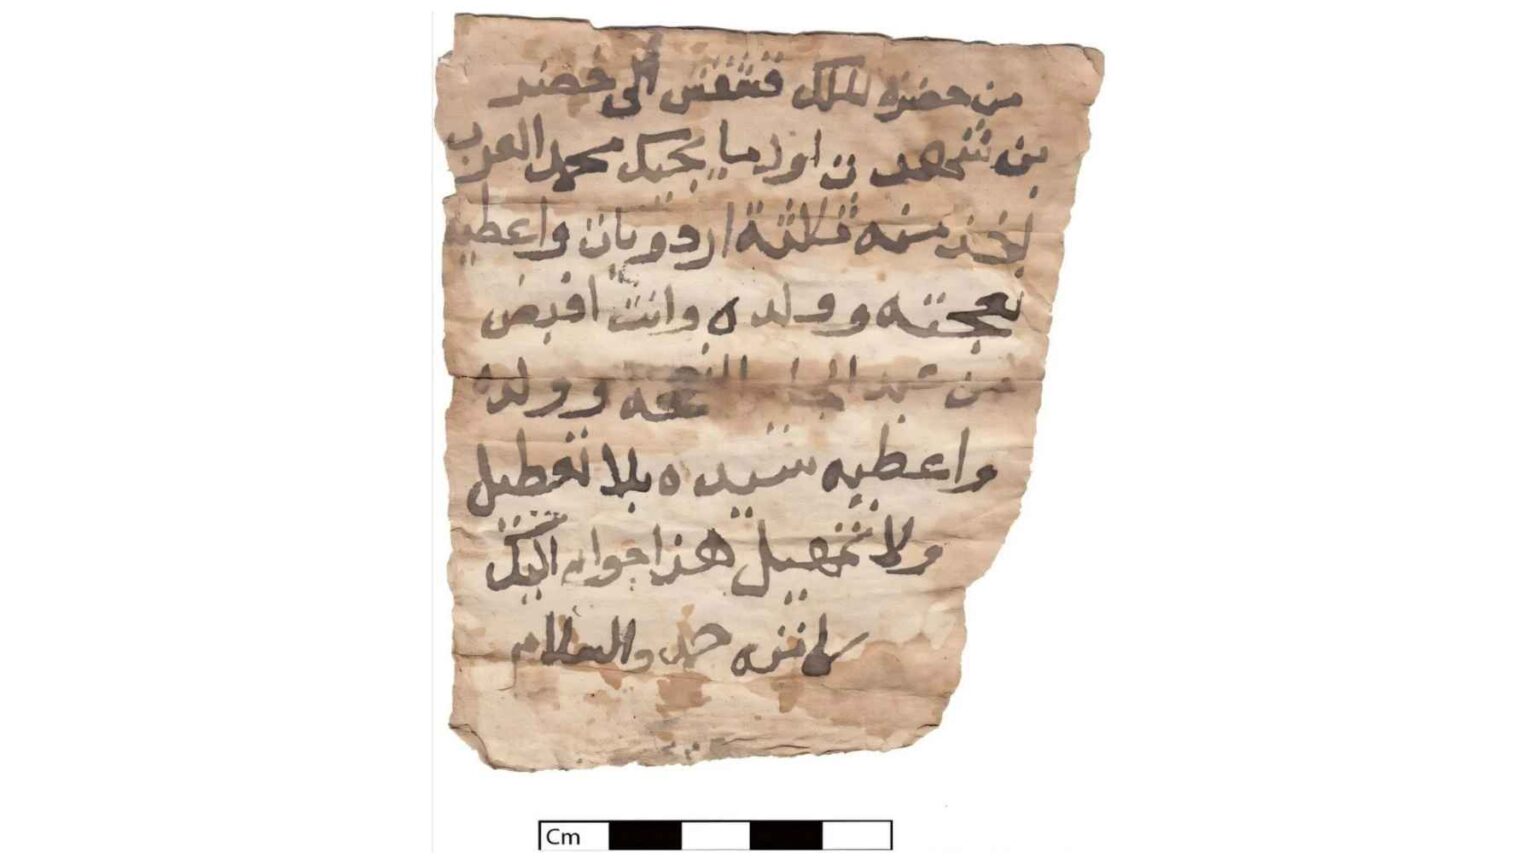 من حضره الملك قشقش الى خضر
بن شهد ن اول ما يجيك محمد العرب
لخذ منه ثلاثة اردويات واعطيه
نعجته وولده وانت اقبض
من عبد النعجه وولده
واعطيه سيده بلا تعطيل
ولا تمهيل هذا جوابي اليك
كاتبه حمد والسلام
Cm